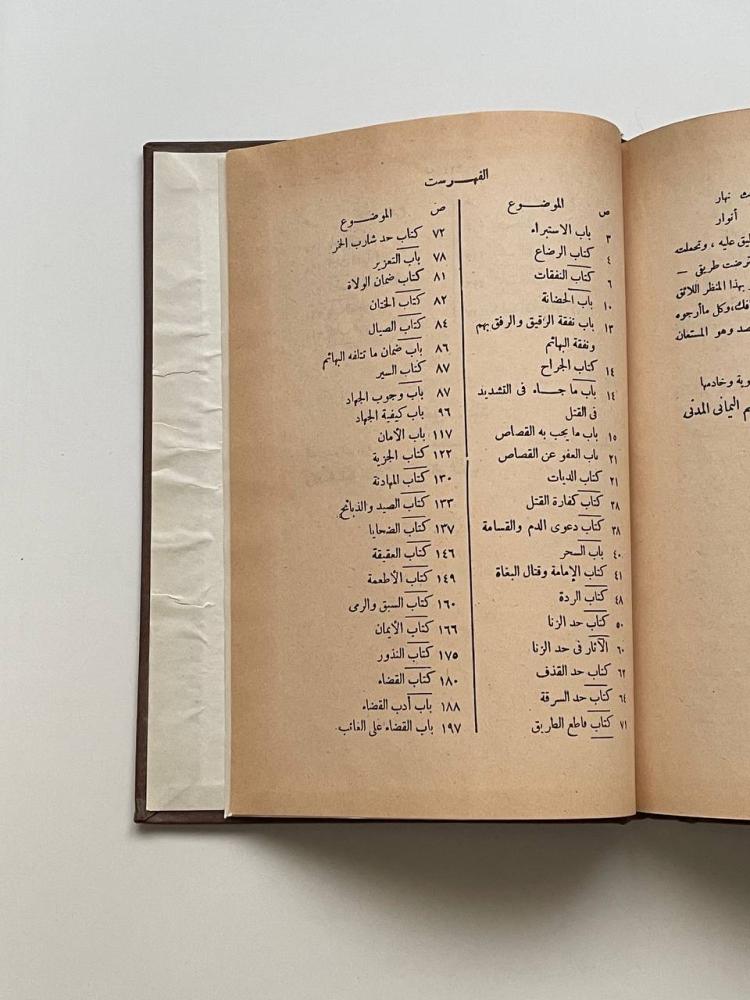 نهار
أنوار
عليه ، وتحملته
طريق —
بهذا المنظر اللائق
وكل ماأرجوه
وهو المستعان
وخادمها
اليمانى المدنى
الفهرست
ص الموضوع
٣ باب الاستبراء
٤ كتاب الرضاع
٦ كتاب النفقات
١٠ باب الحضانة
١٣ باب نفقة الرقيق والرفق بهم
ونفقة البهائم
١٤ كتاب الجراح
١٤ باب ما جاء فى التشديد
فى القتل
١٥ باب ما يجب به القصاص
٢١ باب العفو عن القصاص
٢١ كتاب الديات
٢٨ كتاب كفارة القتل
٣٨ كتاب دعوى الدم والقسامة
٤٠ باب السحر
٤١ كتاب الإمامة وقتال البغاة
٤٨ كتاب الردة
٥٠ كتاب حد الزنا
٦٠ الآثار فى حد الزنا
٦٢ كتاب حد القذف
٦٤ كتاب حد السرقة
٧١ كتاب قاطع الطريق
ص الموضوع
٧٢ كتاب حد شارب الخمر
٧٨ باب التعزير
٨١ كتاب ضمان الولاة
٨٢ كتاب الختان
٨٤ كتاب الصيال
٨٦ باب ضمان ما تتلفه البهائم
٨٧ كتاب السير
٨٧ باب وجوب الجهاد
٩٦ باب كيفية الجهاد
١١٧ باب الأمان
١٢٢ كتاب الجزية
١٣٠ كتاب المهادنة
١٣٣ كتاب الصيد والذبائح
١٣٧ كتاب الضحايا
١٤٦ كتاب العقيقة
١٤٩ كتاب الأطعمة
١٦٠ كتاب السبق والرمى
١٦٦ كتاب الأيمان
١٧٥ كتاب النذور
١٨٠ كتاب القضاء
١٨٨ باب أدب القضاء
١٩٧ باب القضاء على الغائب